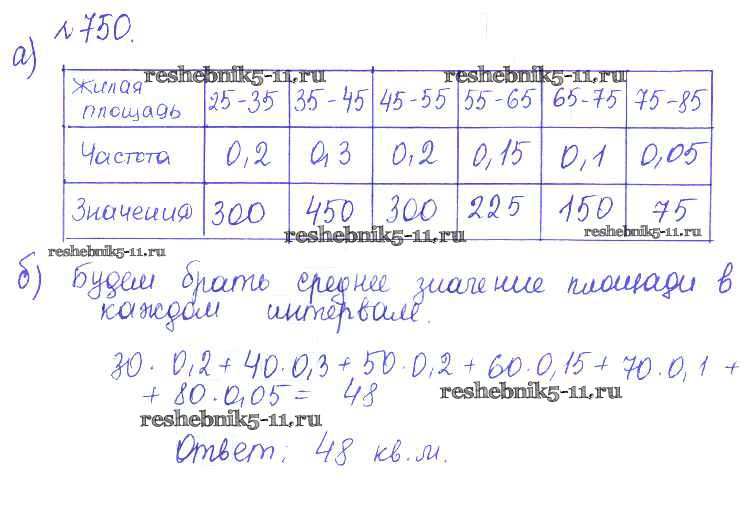 №750.
а)
reshebnik5-11.ru reshebnik5-11.ru
Жилая площадь 25-35 35-45 45-55 55-65 65-75 75-85
Частота 0,2 0,3 0,2 0,15 0,1 0,05
Значения 300 450 300 225 150 75
reshebnik5-11.ru reshebnik5-11.ru
reshebnik5-11.ru
б) Будем брать среднее значение площади в
каждом интервале.
30·0,2+40·0,3+50·0,2+60·0,15+70·0,1+
+80·0,05= 48
reshebnik5-11.ru
reshebnik5-11.ru
Ответ: 48 кв.м.